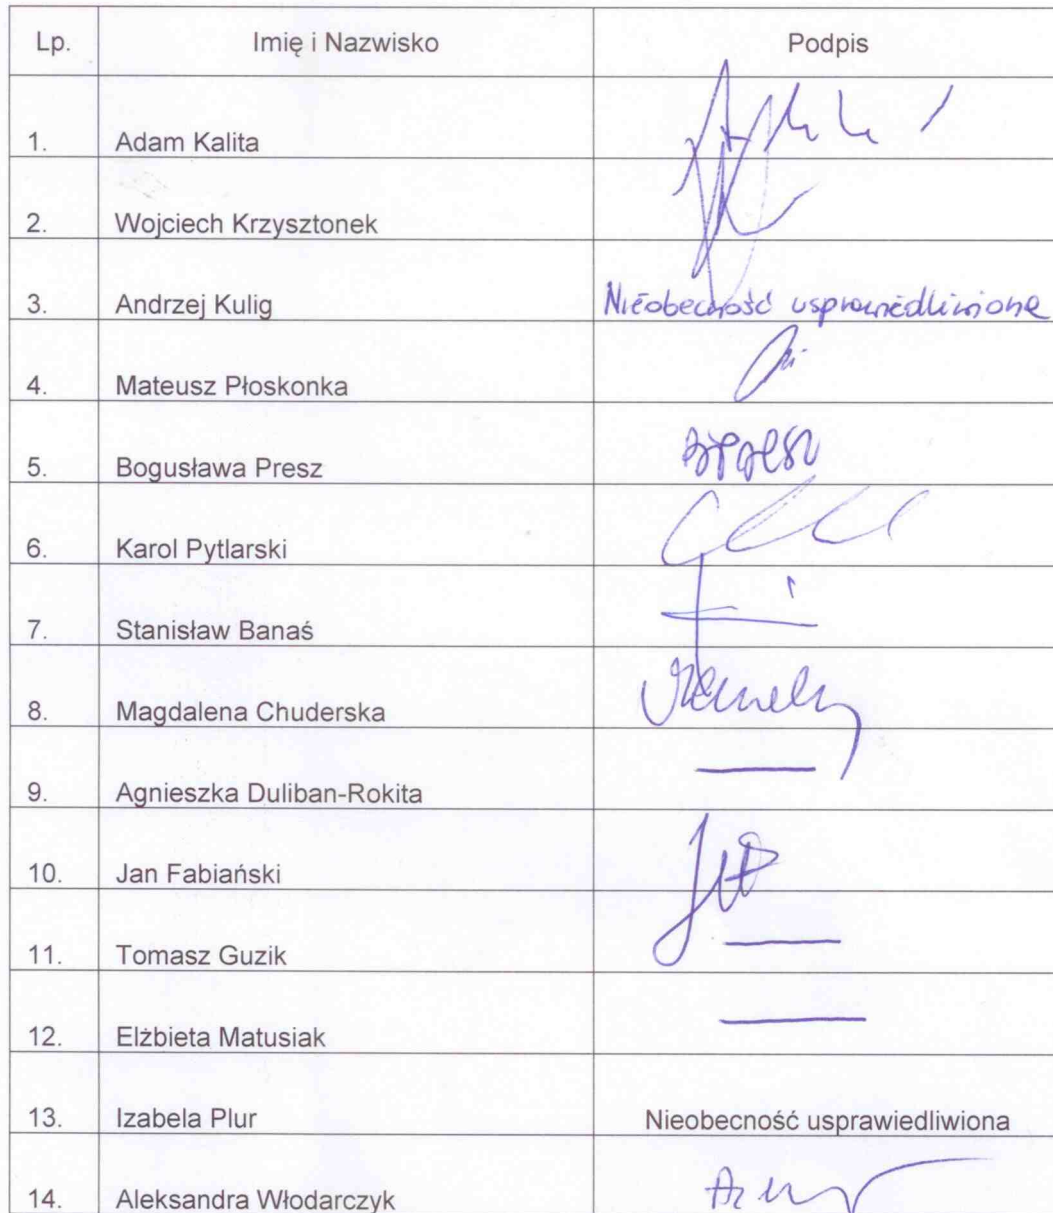 Lp. Imię i Nazwisko Podpis
1. Adam Kalita
2. Wojciech Krzysztonek
3. Andrzej Kulig Nieobecność usprawiedliwiona
4. Mateusz Płoskonka
5. Bogusława Presz
6. Karol Pytlarski
7. Stanisław Banaś
8. Magdalena Chuderska
9. Agnieszka Duliban-Rokita
10. Jan Fabiański
11. Tomasz Guzik
12. Elżbieta Matusiak
13. Izabela Plur Nieobecność usprawiedliwiona
14. Aleksandra Włodarczyk